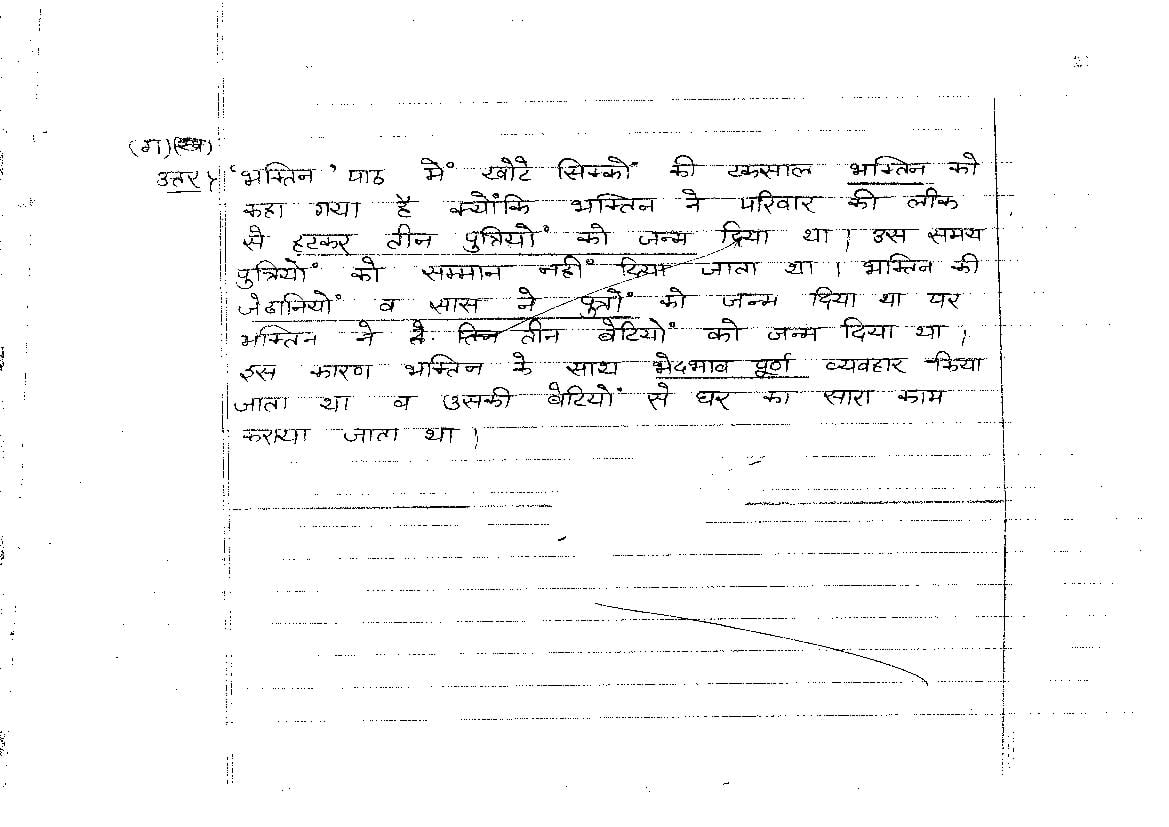 (ग)(ख)
उत्तर > 'भक्तिन' पाठ में खोटे सिक्कों की टकसाल भक्तिन को
कहा गया है क्योंकि भक्तिन ने परिवार की लीक
से हटकर तीन पुत्रियों को जन्म दिया था। उस समय
पुत्रियों को सम्मान नहीं दिया जाता था। भक्तिन की
जेठानियों व सास ने पुत्रों को जन्म दिया था पर
भक्तिन ने तीन बेटियों को जन्म दिया था।
इस कारण भक्तिन के साथ भेदभाव पूर्ण व्यवहार किया
जाता था व उसकी बेटियों से घर का सारा काम
कराया जाता था।